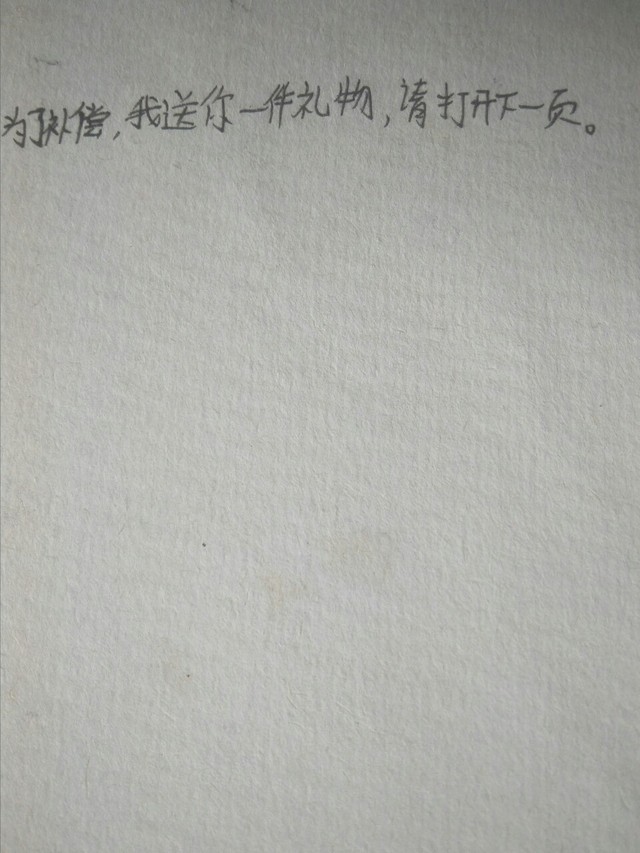 为了补偿,我送你一件礼物,请打开下一页。